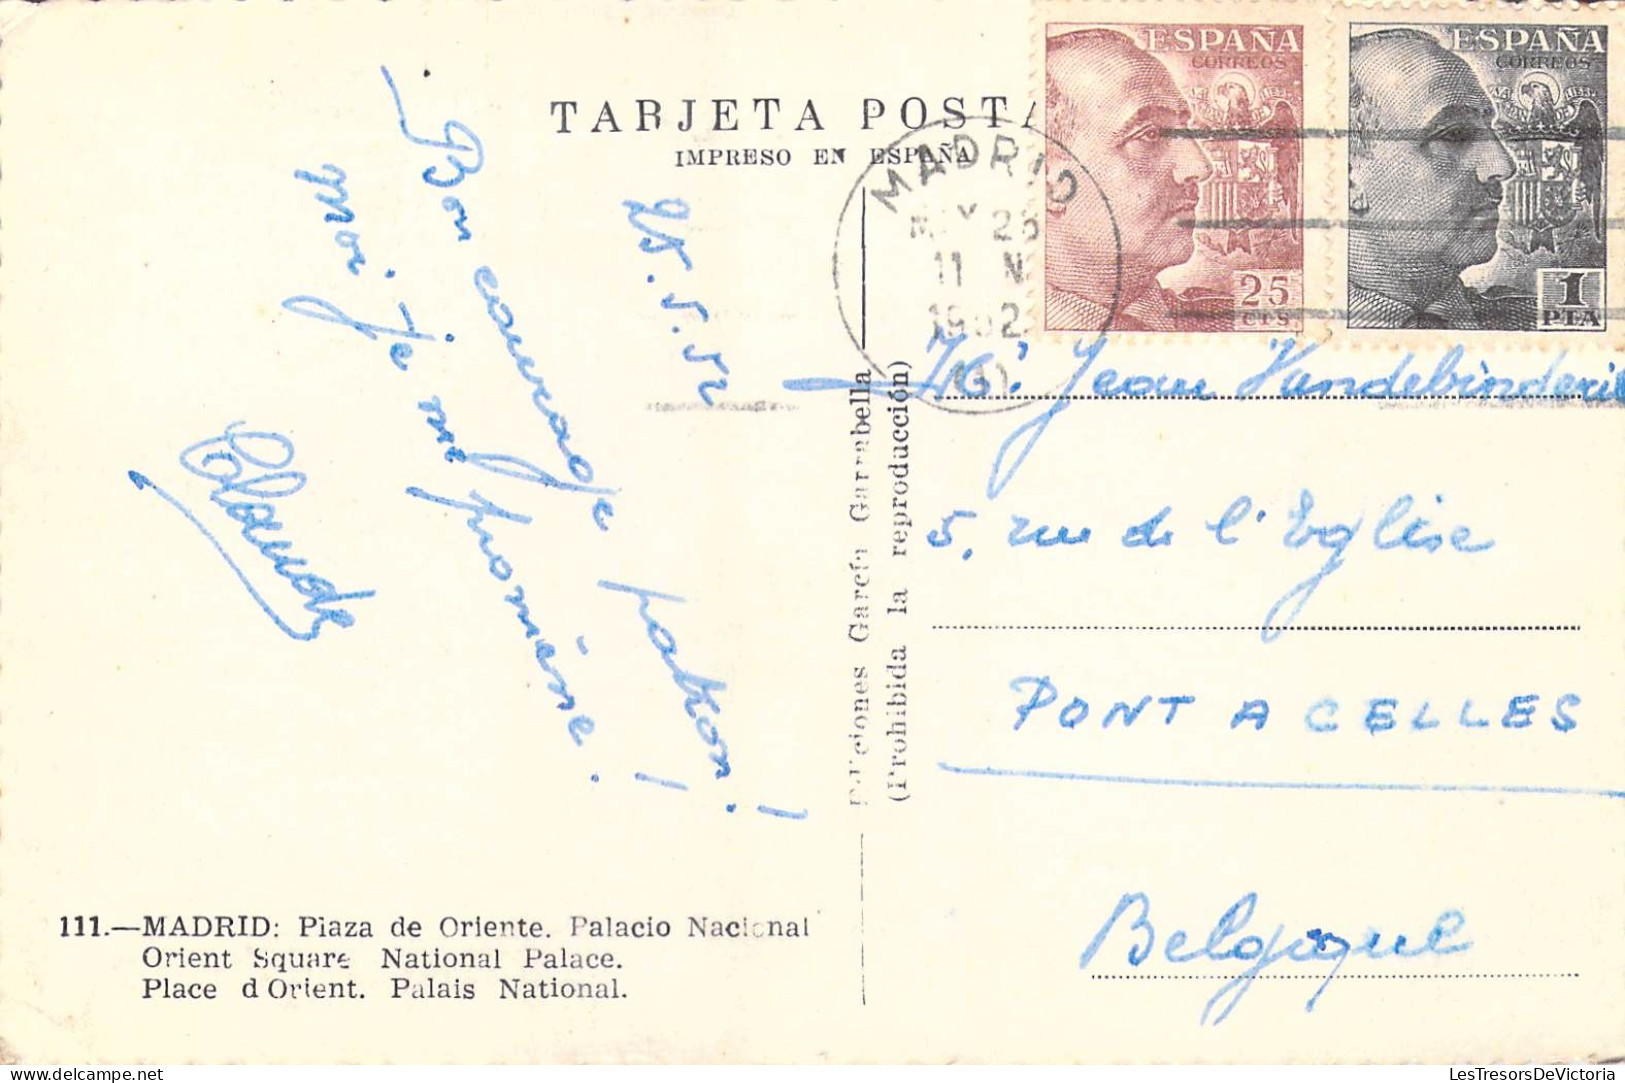 TARJETA POSTA
IMPRESO EN ESPAÑA
ESPAÑA
CORREOS
25
CTS
ESPAÑA
CORREOS
1
PTA
MADRID
MAY 26
11 M
1952
(3)
25.5.52
Bon courage patron!
moi je me promène!
Claude
Ediciones García Garrabella
(Prohibida la reproducción)
Jean Vandebinderie
5, rue de l'Eglise
PONT A CELLES
Belgique
111.—MADRID: Plaza de Oriente. Palacio Nacional
Orient Square National Palace.
Place d'Orient. Palais National.
LesTresorsDeVictoria